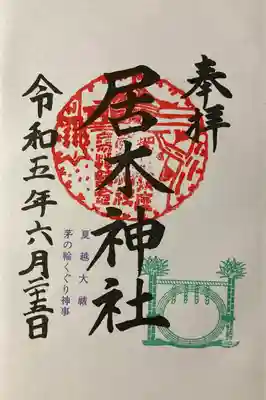 奉拝
居木神社
夏越大祓
茅の輪くぐり神事
令和五年六月二十五日